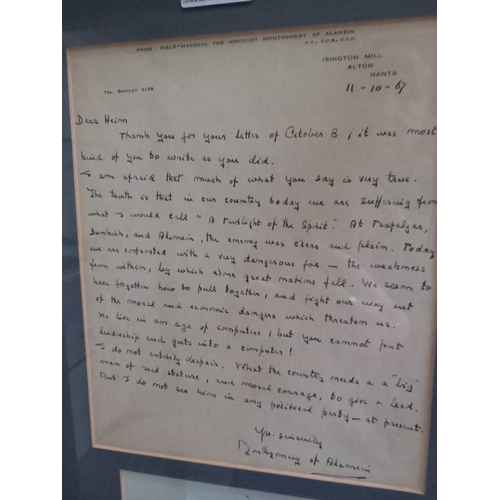 FROM: FIELD-MARSHAL THE VISCOUNT MONTGOMERY OF ALAMEIN
K.G., G.C.B., D.S.O.
ISINGTON MILL
ALTON
HANTS
TEL. BENTLEY 3126
11-10-67
Dear
Thank you for your letter of October 8; it was most
kind of you to write as you did.
I am afraid that much of what you say is very true.
The truth is that in our country today we are suffering from
what I would call "A Twilight of the Spirit". At Trafalgar,
Dunkirk, and Alamein, the enemy was clear and plain. Today
we are confronted with a very dangerous foe — the weakness
from within, by which some great nations fall. We seem to
have forgotten how to pull together, and fight our way out
of the moral and economic dangers which threaten us.
We live in an age of computers; but you cannot put
leadership and guts into a computer!
I do not entirely despair. What the country needs is a "big"
man of real stature, and moral courage, to give a lead.
But I do not see him in any political party — at present.
Yrs. sincerely
Montgomery of Alamein